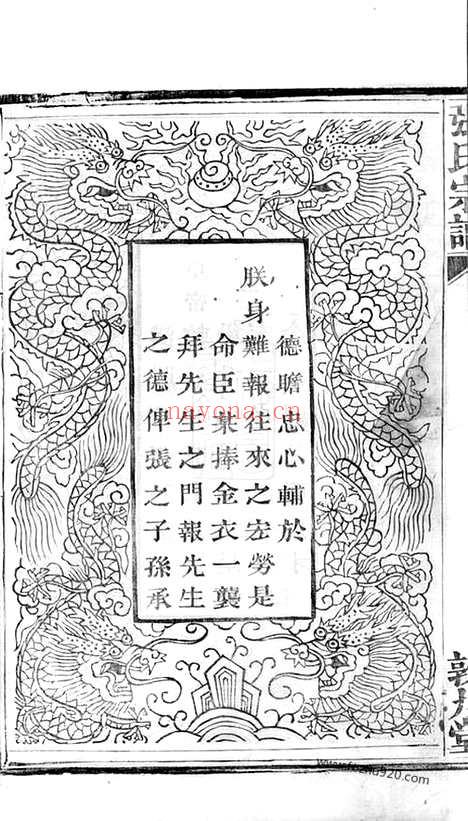 德瞻忠心輔於
朕身難報往來之宏勞是
命臣棐捧金衣一襲
拜先生之門報先生
之德俾張之子孫承
張氏宗譜
敦
堂
nayona.cn